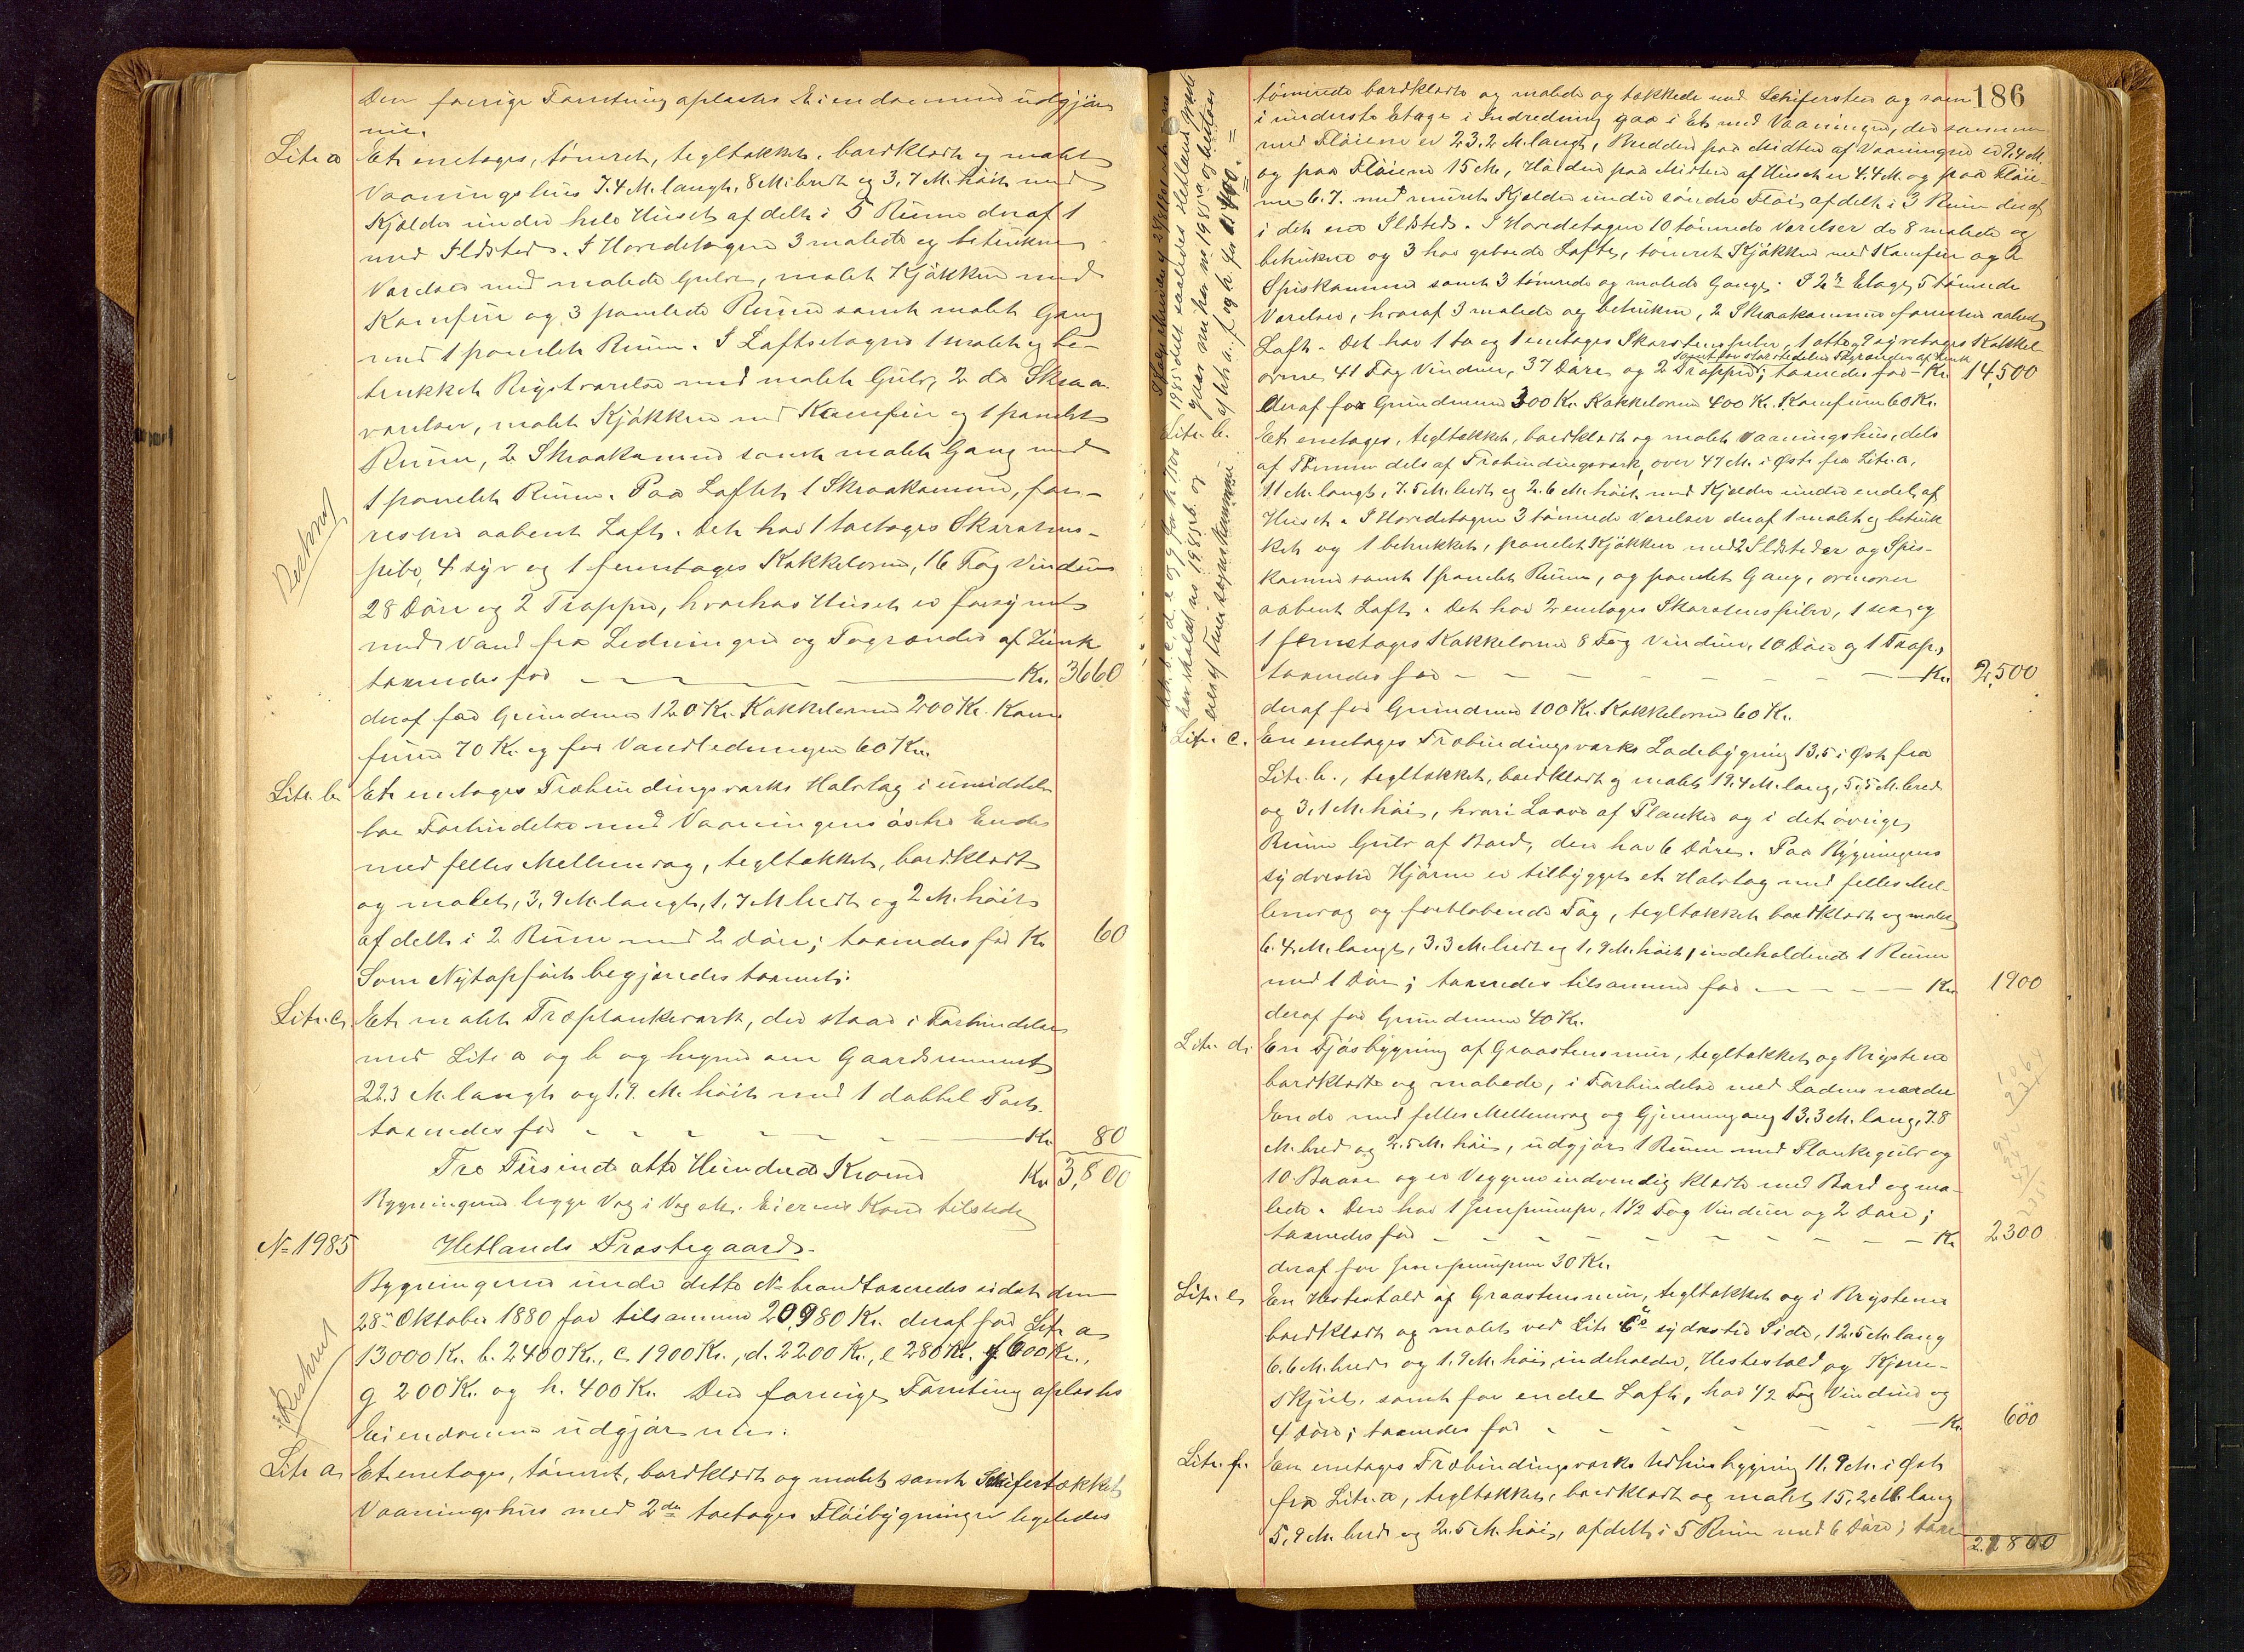 Den forrige Forretning oplæstes Eiendommen udgjør
nu:
Litr a Et enetages, tømret, tegltækket, bordklædt og malet
Vaaningshus 7.4 M. langt, 8 M. bredt og 3,7 M. høit med
Kjelder under hele Huset afdelt i 5 Rum deraf 1
med Ildsted. I Hovedetagen 3 malede og betrukne
Værelser med malede Gulve, malet Kjøkken med
Komfur og 3 panelede Rum samt malet Gang
med 1 panelet Rum. I Loftsetagen 1 malet og be-
trukket Kvistværelse med malet Gulv, 2 do Skraa-
værelser, malet Kjøkken med Komfur og 1 panelet
Rum, 2 Skraakammere samt malet Gang med
1 panelet Rum. Paa Loftet 1 Skraakammer, for-
resten aabent Loft. Det har 1 toetages Skorstens-
pibe, 4 syv og 1 femetages Kakkelovne, 16 Fag Vinduer
28 Døre og 2 Trapper, hvorhos Huset er forsynet
med Vand fra Ledningen og Tagrender af Zink
taxeredes for Kr. 3660
deraf for Grundmur 120 Kr. Kakkelovne 200 Kr. Kom-
furer 70 Kr. og for Vandledningen 60 Kr.
Litr. b. Et enetages Træbindingsværks Halvtag i umiddel-
bar Forbindelse med Vaaningens østre Ende
med felles Mellemvæg, tegltækket, bordklædt
og malet, 3,9 M. langt, 1,7 M bredt og 2 M. høit
afdelt i 2 Rum med 2 Døre; taxeredes for Kr 60
Som Nyt opført begjæredes taxeret:
Litr. c. Et malet Træplankeværk, der staar i Forbindelse
med Litr a og b og hegner om Gaardsrummet
22.3 M. langt og 1.9. M. høit med 1 dobbel Port
taxeredes for Kr. 80
Tre Tusinde otte Hundrede Kroner Kr 3,800
Bygningerne ligge Væg i Væg etc. Eierens Kone tilstede
№ 1985 Hetlands Præstegaard.
Bygningerne under dette No brandtaxeredes sidst den
28de Oktober 1880 for tilsammen 20,980 Kr. deraf for Litr a
13000 Kr. b. 2400 Kr., c 1900 Kr., d. 2200 Kr., e 280 Kr. f. 600 Kr.,
g 200 Kr. og h. 400 Kr. Den forrige Forretning oplæstes
Eiendommen udgjør nu:
Litr a. Et enetages, tømret, bordklædt og malet samt Skifertækket
Vaaningshus med 2de toetages Fløibygninger ligeledes
186
tømrede bordklædte og malede og tækkede med Skifersten og som
i underste Etage i Indredning gaa i Et med Vaaningen, der sammen
med Fløiene er 23.2 M. langt, Bredden paa Midten af Vaaningen er 9.4 M.
og paa Fløiene 15 M., Høiden paa Midten af Huset er 4.4 M. og paa Fløie-
ne 6.7. med muret Kjelder under søndre Fløi afdelt i 3 Rum deraf
i det ene Ildsted. I Hovedetagen 10 tømrede Værelser de 8 malede og
betrukne og 3 har gibsede Lofte, tømret Kjøkken med Komfur og 2
Spiskammere samt 3 tømrede og malede Gange. I 2de Etage 5 tømrede
Værelser, hvoraf 3 malede og betrukne, 2 Skraakammere forresten aabent
Loft. Det har 1 to og 1 enetages Skorstenspiber, 1 otte og 9 syvetages Kakkel-
samt for størstedelen Tagrender af Zink
ovne, 41 Fag Vinduer, 37 Døre og 2 Trapper; taxeredes for Kr. 14,500
deraf for Grundmuren 300 Kr. Kakkelovne 400 Kr. Komfuren 60 Kr.
Litr. b. Et enetages, tegltækket, bordklædt og malet Vaaningshus, dels
af Tømmer dels af Træbindingsværk, over 47 M. i Øst fra Litr. a,
11 M. langt, 7.5 M. bredt og 2.6 M. høit, med Kjelder under endel af
Huset. I Hovedetagen 3 tømrede Værelser deraf 1 malet og betruk-
ket og 1 betrukket, panelet Kjøkken med 2 Ildsteder og Spis-
kammer samt 1 panelet Rum, og panelet Gang, ovenover
aabent Loft. Det har 2 enetages Skorstenspiber, 1 sex og
1 femetages Kakkelovne 8 Fag Vinduer, 10 Døre og 1 Trap,
taxeredes for Kr. 2,500
deraf for Grundmuren 100 Kr. Kakkelovne 60 Kr.
Litr. c. En enetages Træbindingsværks Ladebygning 13,5 i Øst fra
Litr. b., tegltækket, bordklædt og malet 19.4 M. lang, 5,5 M. bred
og 3,1 M. høi, hvori Laave af Planker og i det øvrige
Rum Gulv af Bord, den har 6 Døre. Paa Bygningens
sydvestre Hjørne er tilbygget et Halvtag med felles Mel-
lemvæg og fortløbende Tag, tegltækket bordklædt og malet
6.4 M. langt, 3.3 M. bredt og 1,9 M. høit, indeholdende 1 Rum
med 1 Dør; taxeredes tilsammen for Kr 1900
deraf for Grundmur 40 Kr.
Litr. d. En Fjøsbygning af Graastensmur, tegltækket og Brystene
bordklædte og malede, i Forbindelse med Ladens nordre
Ende med felles Mellemvæg og Gjennemgang 13.3 M. lang, 7.8
M. bred og 2.5 M. høi, udgjør 1 Rum med Plankegulv og
10 Baase og er Væggene indvendig klædte med Bord og ma-
lede. Den har 1 Jernpumpe, 1½ Fag Vinduer og 2 Døre;
taxeredes for Kr 2300
deraf for Jernpumpen 30 Kr.
Litr. e. En Hestestald af Graastensmur, tegltækket og i Brystene
bordklædt og malet ved Litr. c's sydvestre Side, 12.5 M. lang
6.6 M. bred og 1.9 M. høi, indeholder, Hestestald og Kjørre-
skjul, samt for endel Loft, har ½ Fag Vinduer og
4 Døre; taxeredes for Kr. 600
Litr. f. En enetages Træbindingsværks Udhusbygning 11.9 M. i Øst
fra Litr. a, tegltækket, bordklædt og malet 15,2 M. lang
5,9 M. bred og 2.5 M. høi, afdelt i 5 Rum med 6 Døre; taxe-
21800